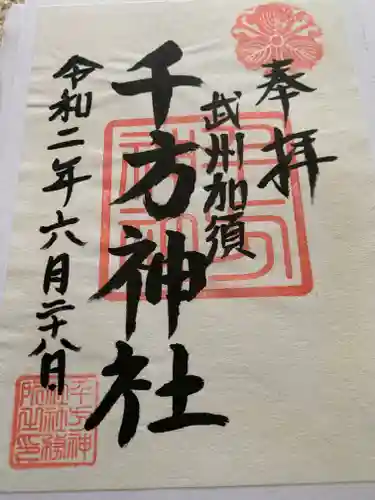 奉拝
武州加須
千方神社
令和二年六月二十八日
千方神
社社務
所之印